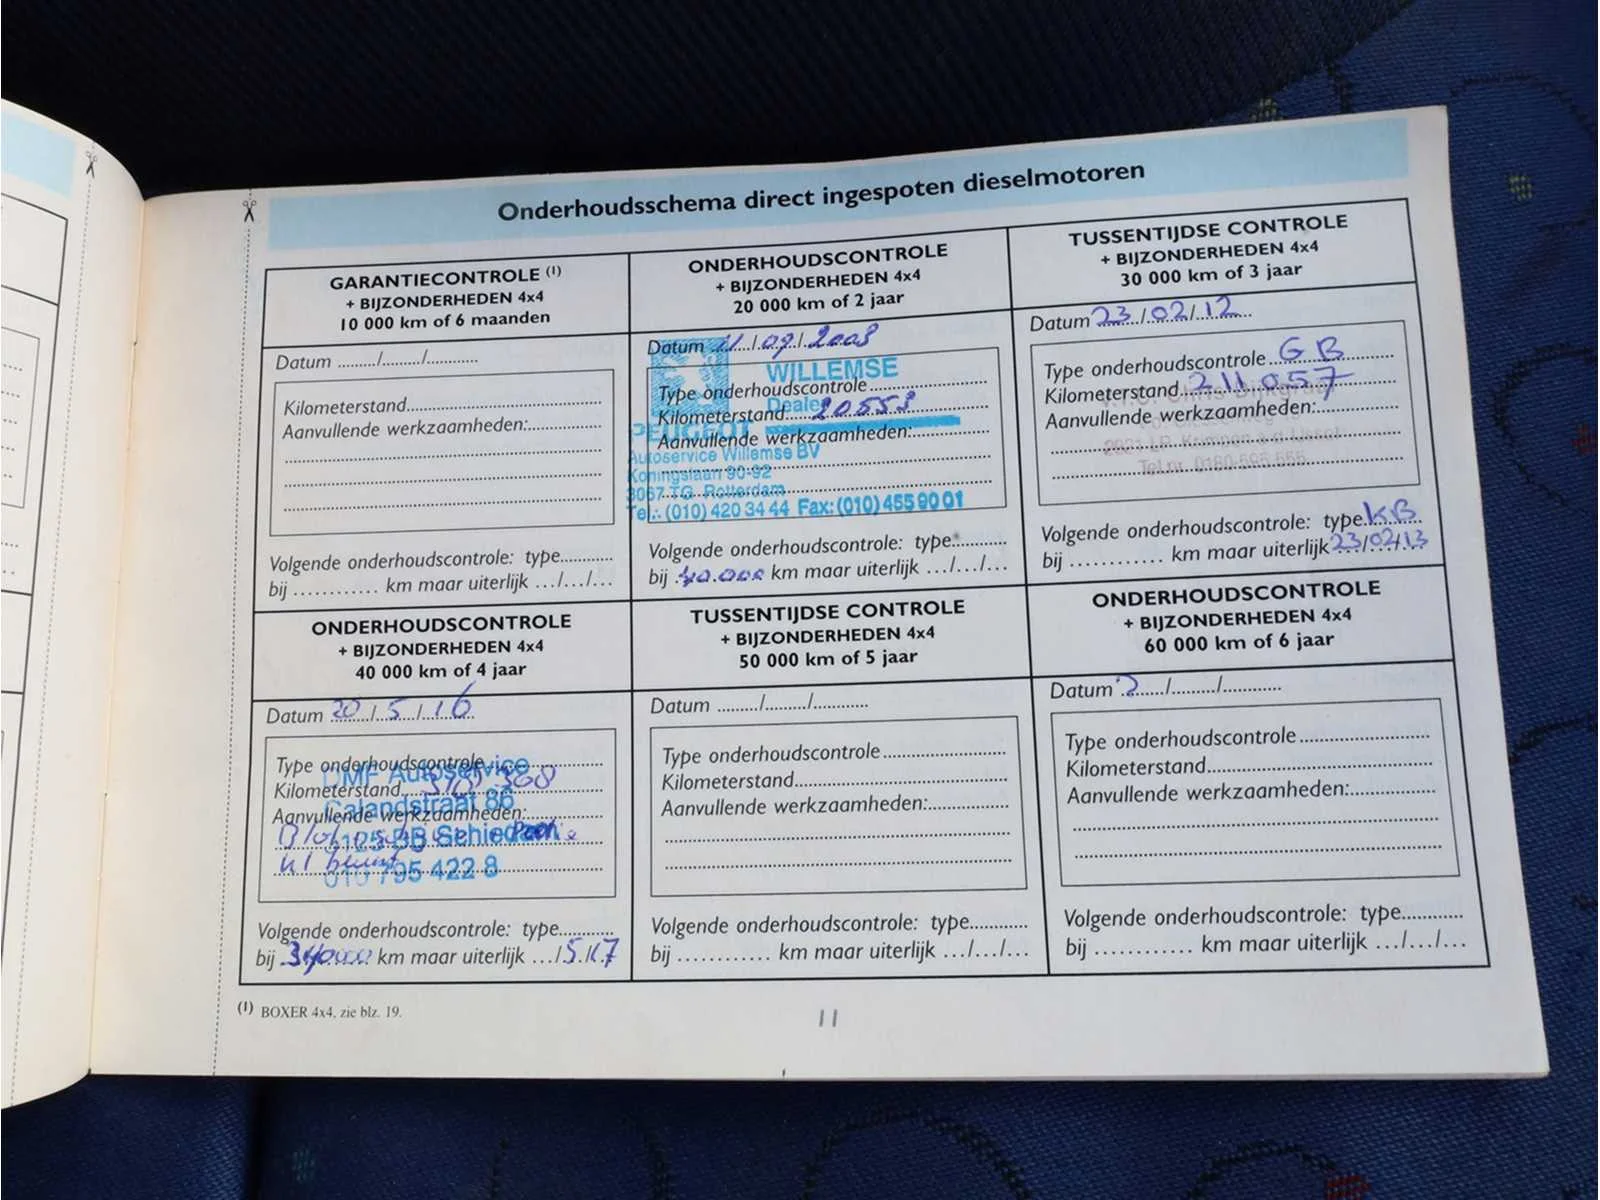 Onderhoudsschema direct ingespoten dieselmotoren
GARANTIECONTROLE (1)
+ BIJZONDERHEDEN 4x4
10 000 km of 6 maanden
Datum ........./........./............
Kilometerstand
Aanvullende werkzaamheden:
Volgende onderhoudscontrole: type
bij ............ km maar uiterlijk .../.../...
ONDERHOUDSCONTROLE
+ BIJZONDERHEDEN 4x4
20 000 km of 2 jaar
Datum /09/2008
WILLEMSE
Type onderhoudscontrole
Dealer
Kilometerstand 20553
PEUGEOT
Aanvullende werkzaamheden:
Autoservice Willemse BV
Koningslaan 90-92
3067 TG Rotterdam
Tel.: (010) 420 34 44 Fax: (010) 455 90 01
Volgende onderhoudscontrole: type
bij 40.000 km maar uiterlijk .../.../...
TUSSENTIJDSE CONTROLE
+ BIJZONDERHEDEN 4x4
30 000 km of 3 jaar
Datum 23/02/12
Type onderhoudscontrole GB
Kilometerstand 211057
Chris Dijkgraaf
Aanvullende werkzaamheden:
Krimpen a.d. IJssel
Tel.nr. 0180-595 555
Volgende onderhoudscontrole: type KB
bij ............ km maar uiterlijk 23/02/13
ONDERHOUDSCONTROLE
+ BIJZONDERHEDEN 4x4
40 000 km of 4 jaar
Datum 20/5/16
Type onderhoudscontrole
DMF Autoservice
Kilometerstand 308
Calandstraat 86
Aanvullende werkzaamheden:
BB Schiedam
010 795 422 8
Volgende onderhoudscontrole: type
bij 340000 km maar uiterlijk .../5/17
TUSSENTIJDSE CONTROLE
+ BIJZONDERHEDEN 4x4
50 000 km of 5 jaar
Datum ........./........./............
Type onderhoudscontrole
Kilometerstand
Aanvullende werkzaamheden:
Volgende onderhoudscontrole: type
bij ............ km maar uiterlijk .../.../...
ONDERHOUDSCONTROLE
+ BIJZONDERHEDEN 4x4
60 000 km of 6 jaar
Datum 2/........./............
Type onderhoudscontrole
Kilometerstand
Aanvullende werkzaamheden:
Volgende onderhoudscontrole: type
bij ............ km maar uiterlijk .../.../...
(1) BOXER 4x4, zie blz. 19.
11